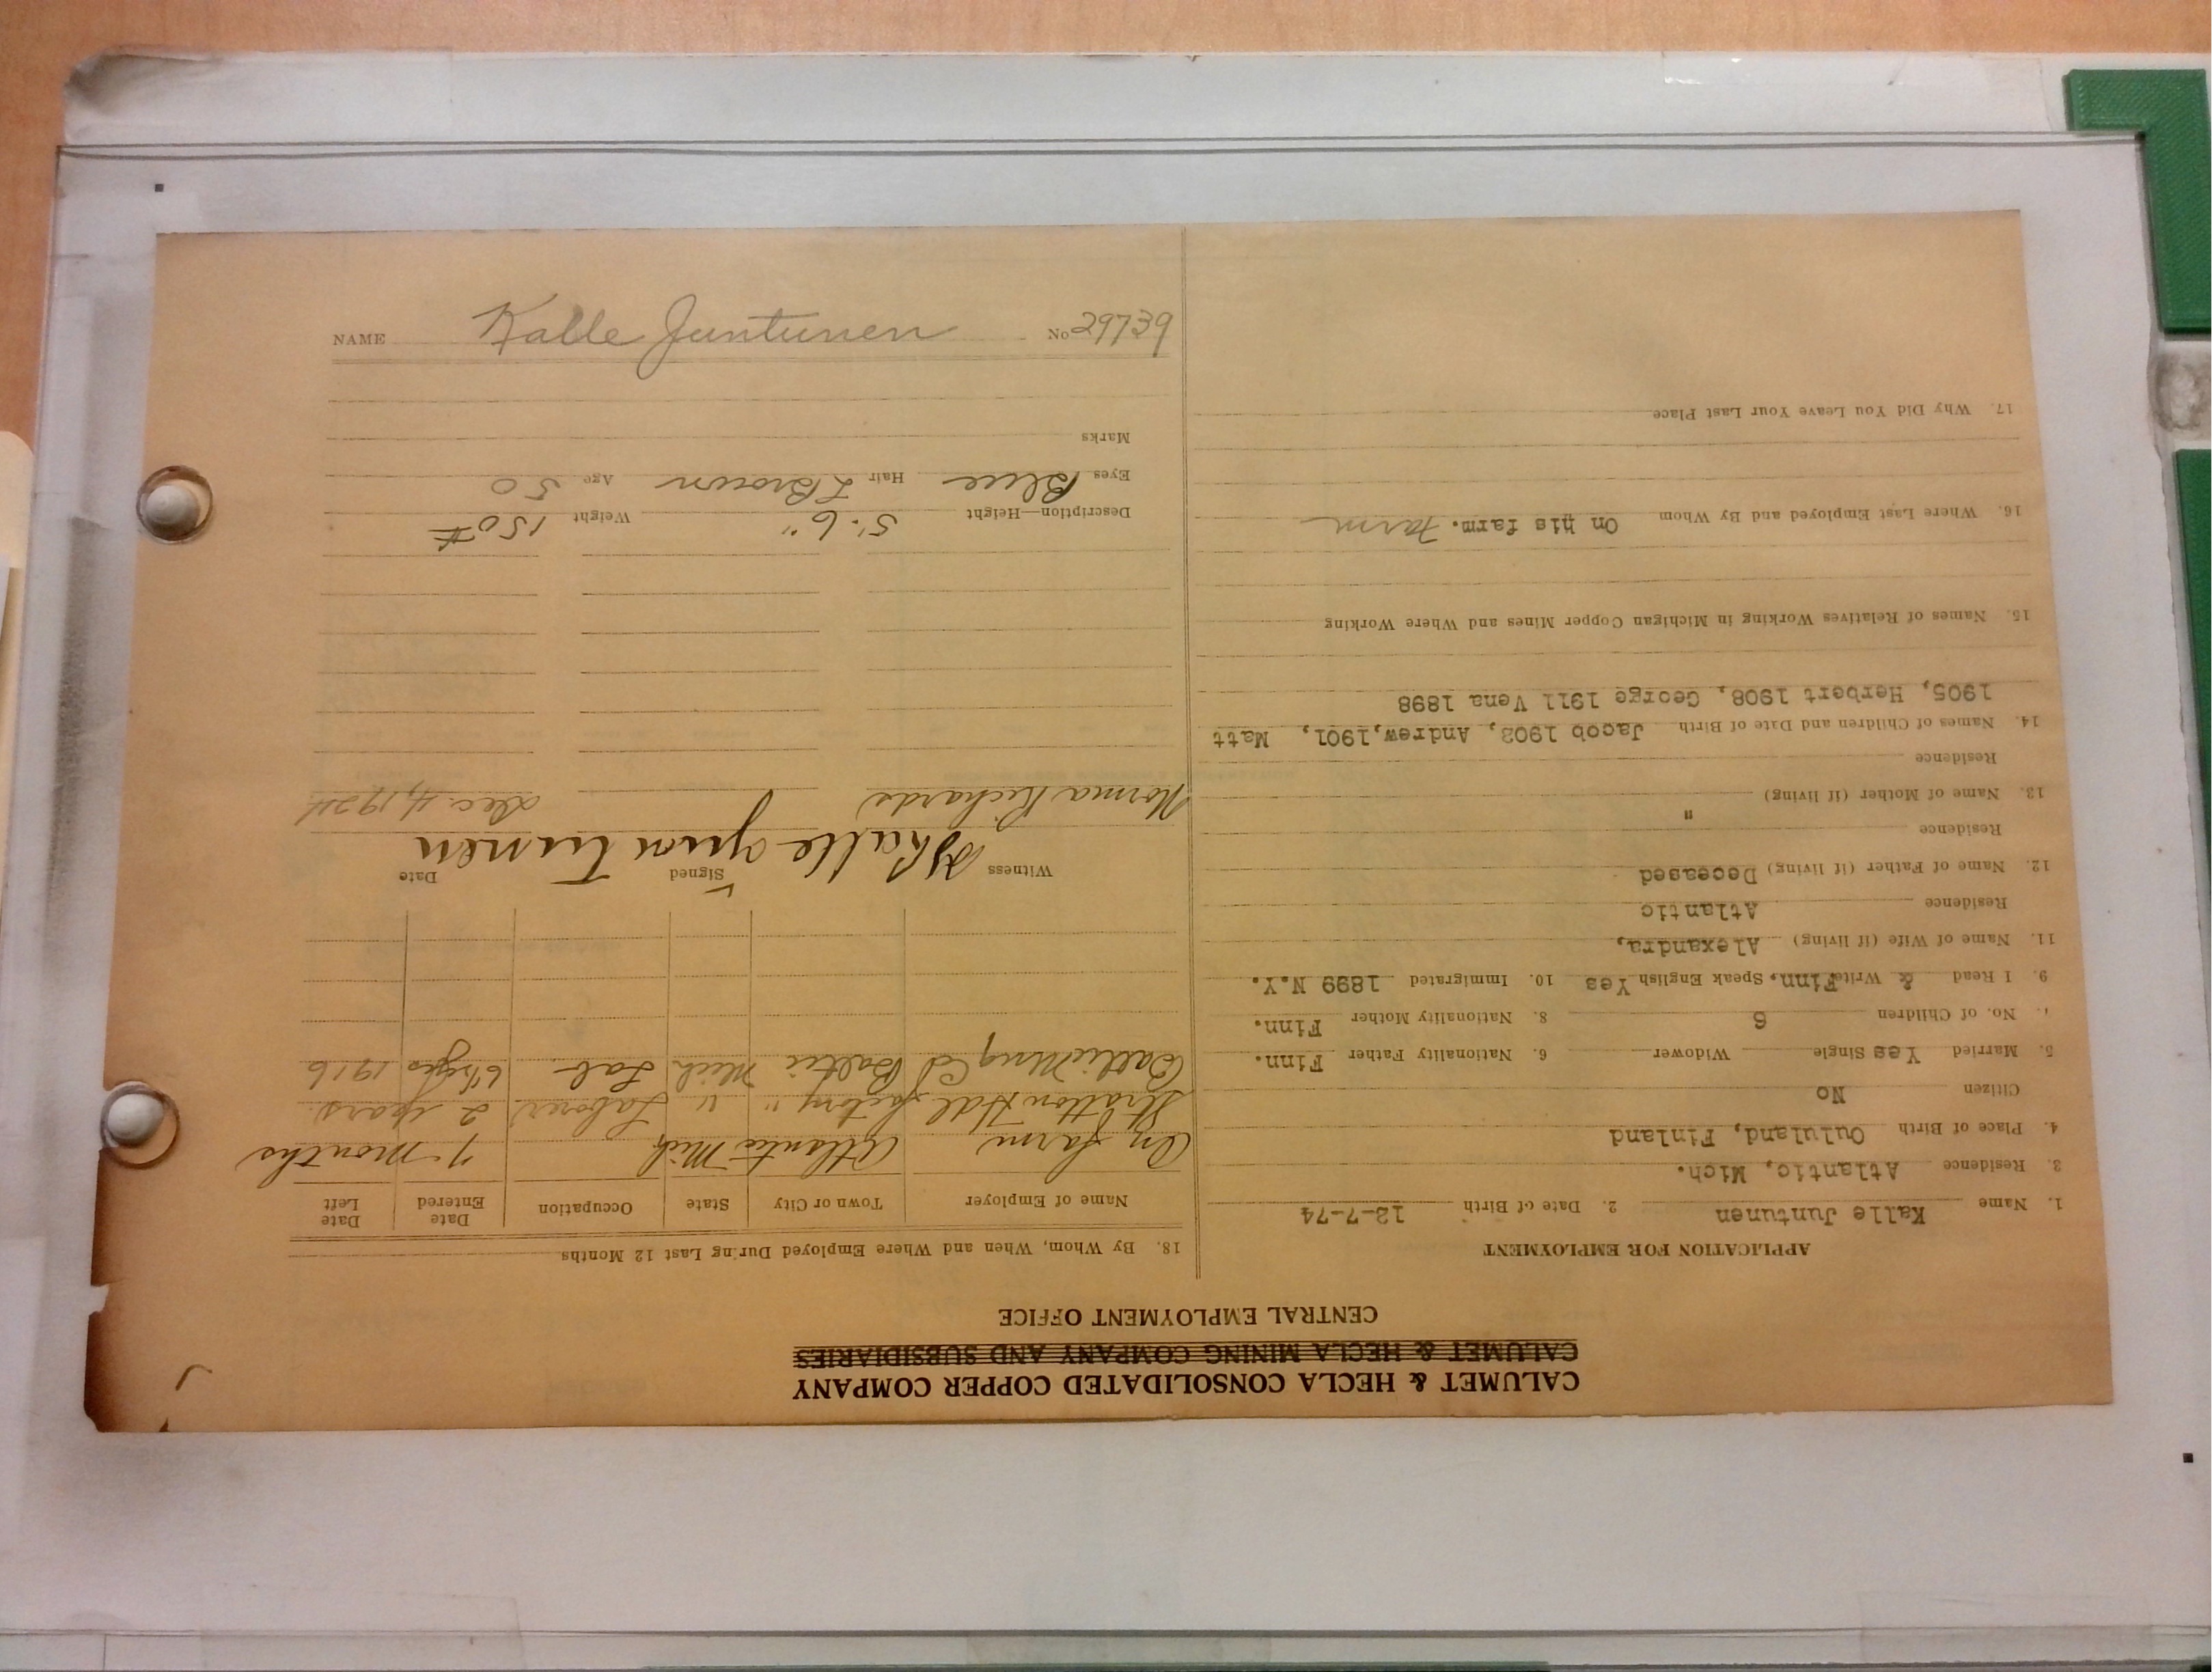 CALUMET & HECLA CONSOLIDATED COPPER COMPANY
CALUMET & HECLA MINING COMPANY AND SUBSIDIARIES
CENTRAL EMPLOYMENT OFFICE
APPLICATION FOR EMPLOYMENT
1. Name Kalle Juntunen 2. Date of Birth 12-7-74
3. Residence Atlantic, Mich.
4. Place of Birth Oululund, Finland
Citizen No
5. Married Yes Single Widower 6. Nationality Father Finn.
7. No. of Children 6 8. Nationality Mother Finn.
9. I Read & Write Finn. Speak English Yes 10. Immigrated 1899 N.Y.
11. Name of Wife (if living) Alexandra,
Residence Atlantic
12. Name of Father (if living) Deceased
Residence
13. Name of Mother (if living) "
Residence
14. Names of Children and Date of Birth Jacob 1903, Andrew,1901, Matt
1905, Herbert 1908, George 1911 Vena 1898
15. Names of Relatives Working in Michigan Copper Mines and Where Working
16. Where Last Employed and By Whom On his farm. Farm
17. Why Did You Leave Your Last Place
18. By Whom, When and Where Employed During Last 12 Months
Name of Employer Town or City State Occupation Date Entered Date Left
On farm Atlantic Mich 7-months
Stratton Hdl factory " " Laborer 2 years.
Baltic Mng Co Baltic Mich Lab 6 yrs 1916
Witness Signed Date
Kalle Juntunen
Norma Richards Dec. 4, 1924
Description—Height 5'. 6" Weight 150#
Eyes Blue Hair L Brown Age 50
Marks
NAME Kalle Juntunen No 29739